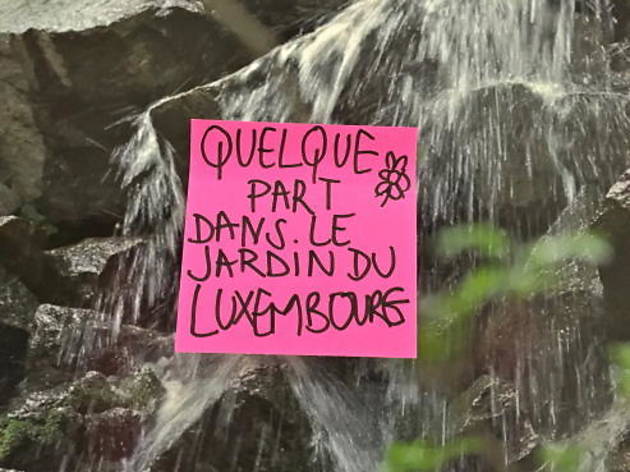 QUELQUE
PART
DANS. LE
JARDIN DU
LUXEMBOURG